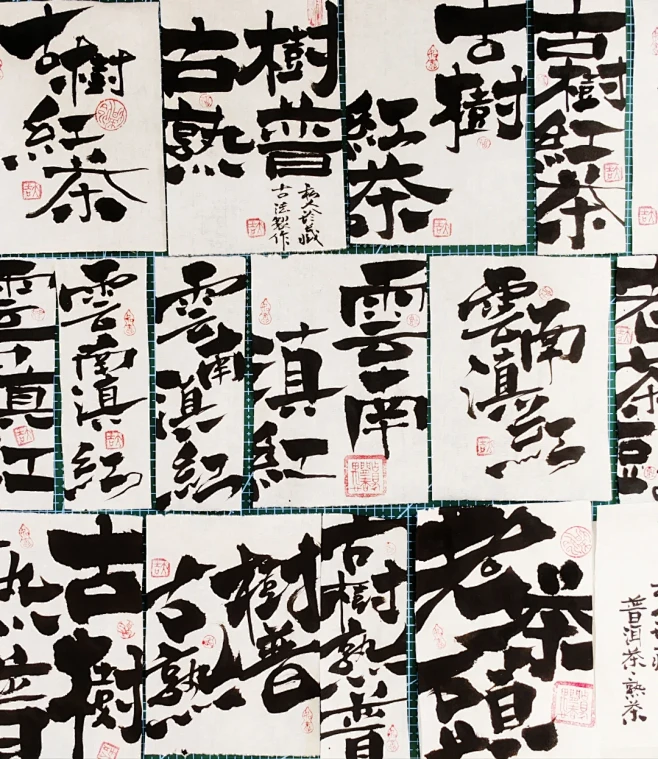 古樹
紅茶
古樹
熟普
私人珍藏
古法製作
古樹
紅茶
古樹紅茶
雲南
滇紅
雲南滇紅
雲南
滇紅
雲南
滇紅
雲南
滇紅
老茶頭
古樹
熟普
古熟
樹普
古樹熟普
老茶頭
普洱茶·熟茶